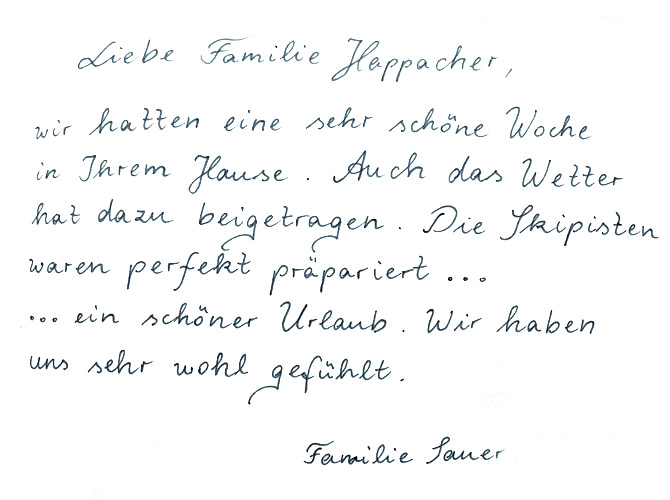 Liebe Familie Happacher,
wir hatten eine sehr schöne Woche
in Ihrem Hause. Auch das Wetter
hat dazu beigetragen. Die Skipisten
waren perfekt präpariert ...
... ein schöner Urlaub. Wir haben
uns sehr wohl gefühlt.
Familie Sauer